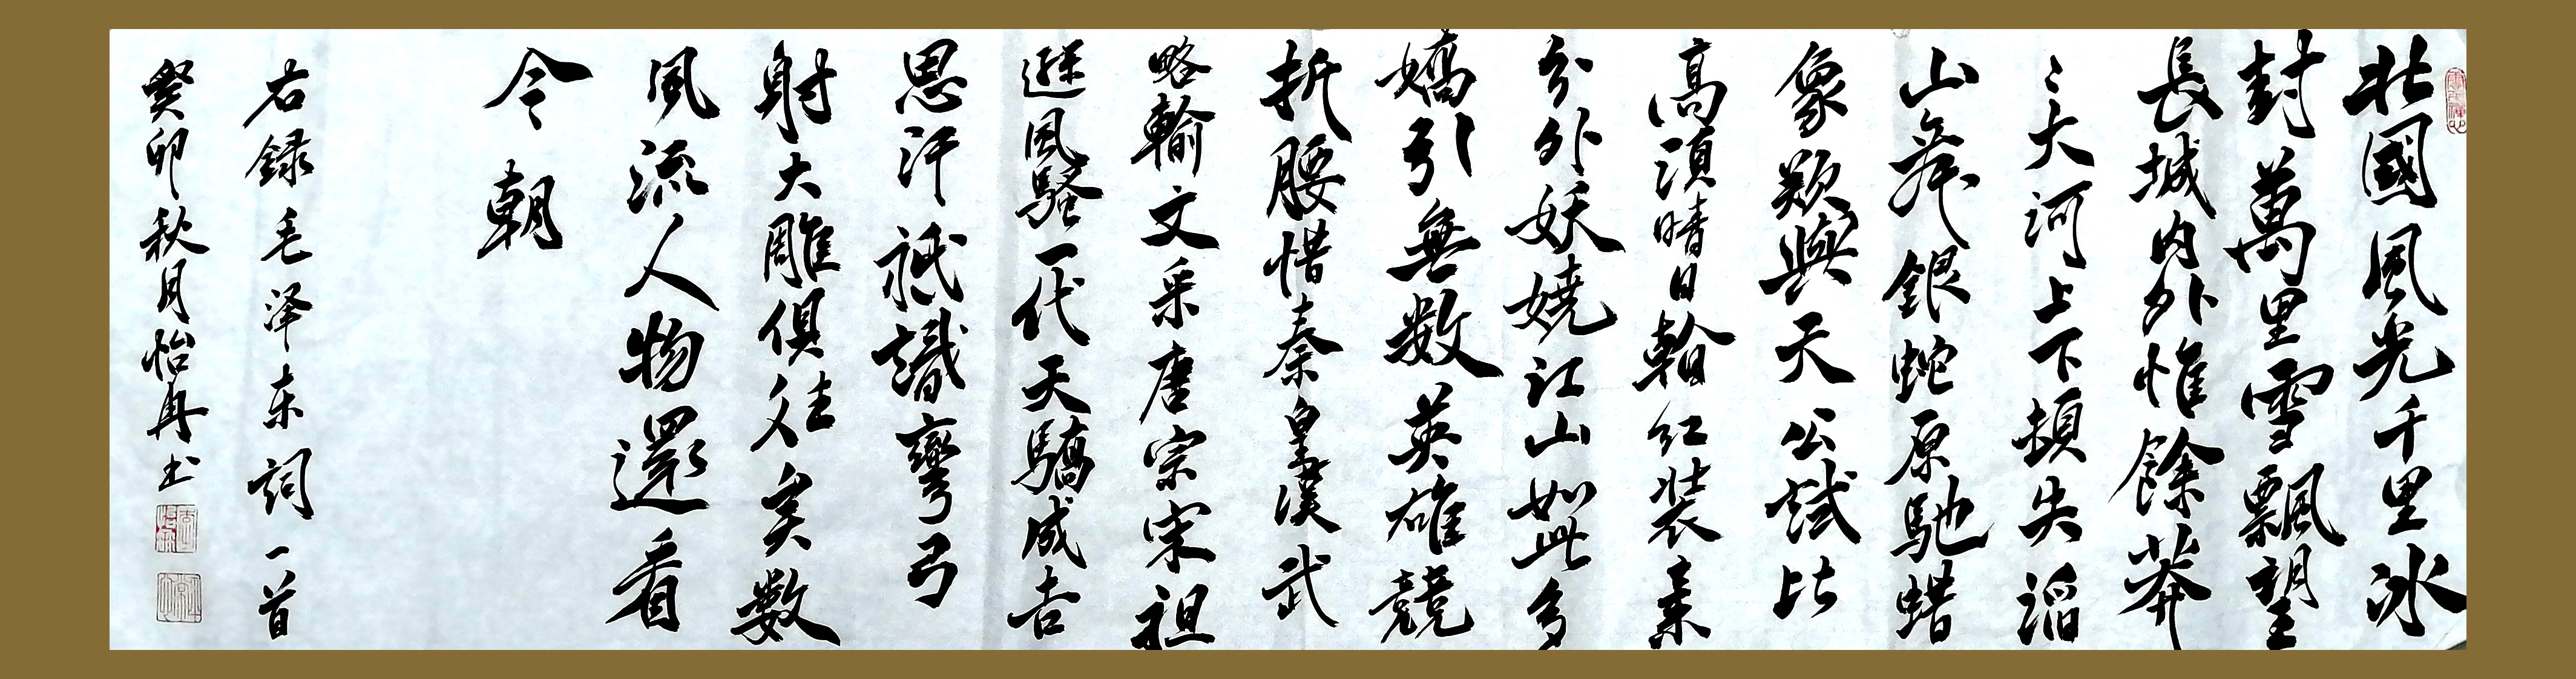 北國風光千里冰
封萬里雪飄望
長城内外惟餘莽
〻大河上下頓失滔
山舞銀蛇原馳蜡
象欲與天公試比
高須晴日翰紅裝素
分外妖嬈江山如此多
嬌引無数英雄競
折腰惜秦皇漢武
略輸文采唐宗宋祖
遜風騷一代天驕成吉
思汗祇識彎弓
射大雕俱往矣數
風流人物還看
今朝
右録毛泽东詞一首
癸卯秋月怡冉书